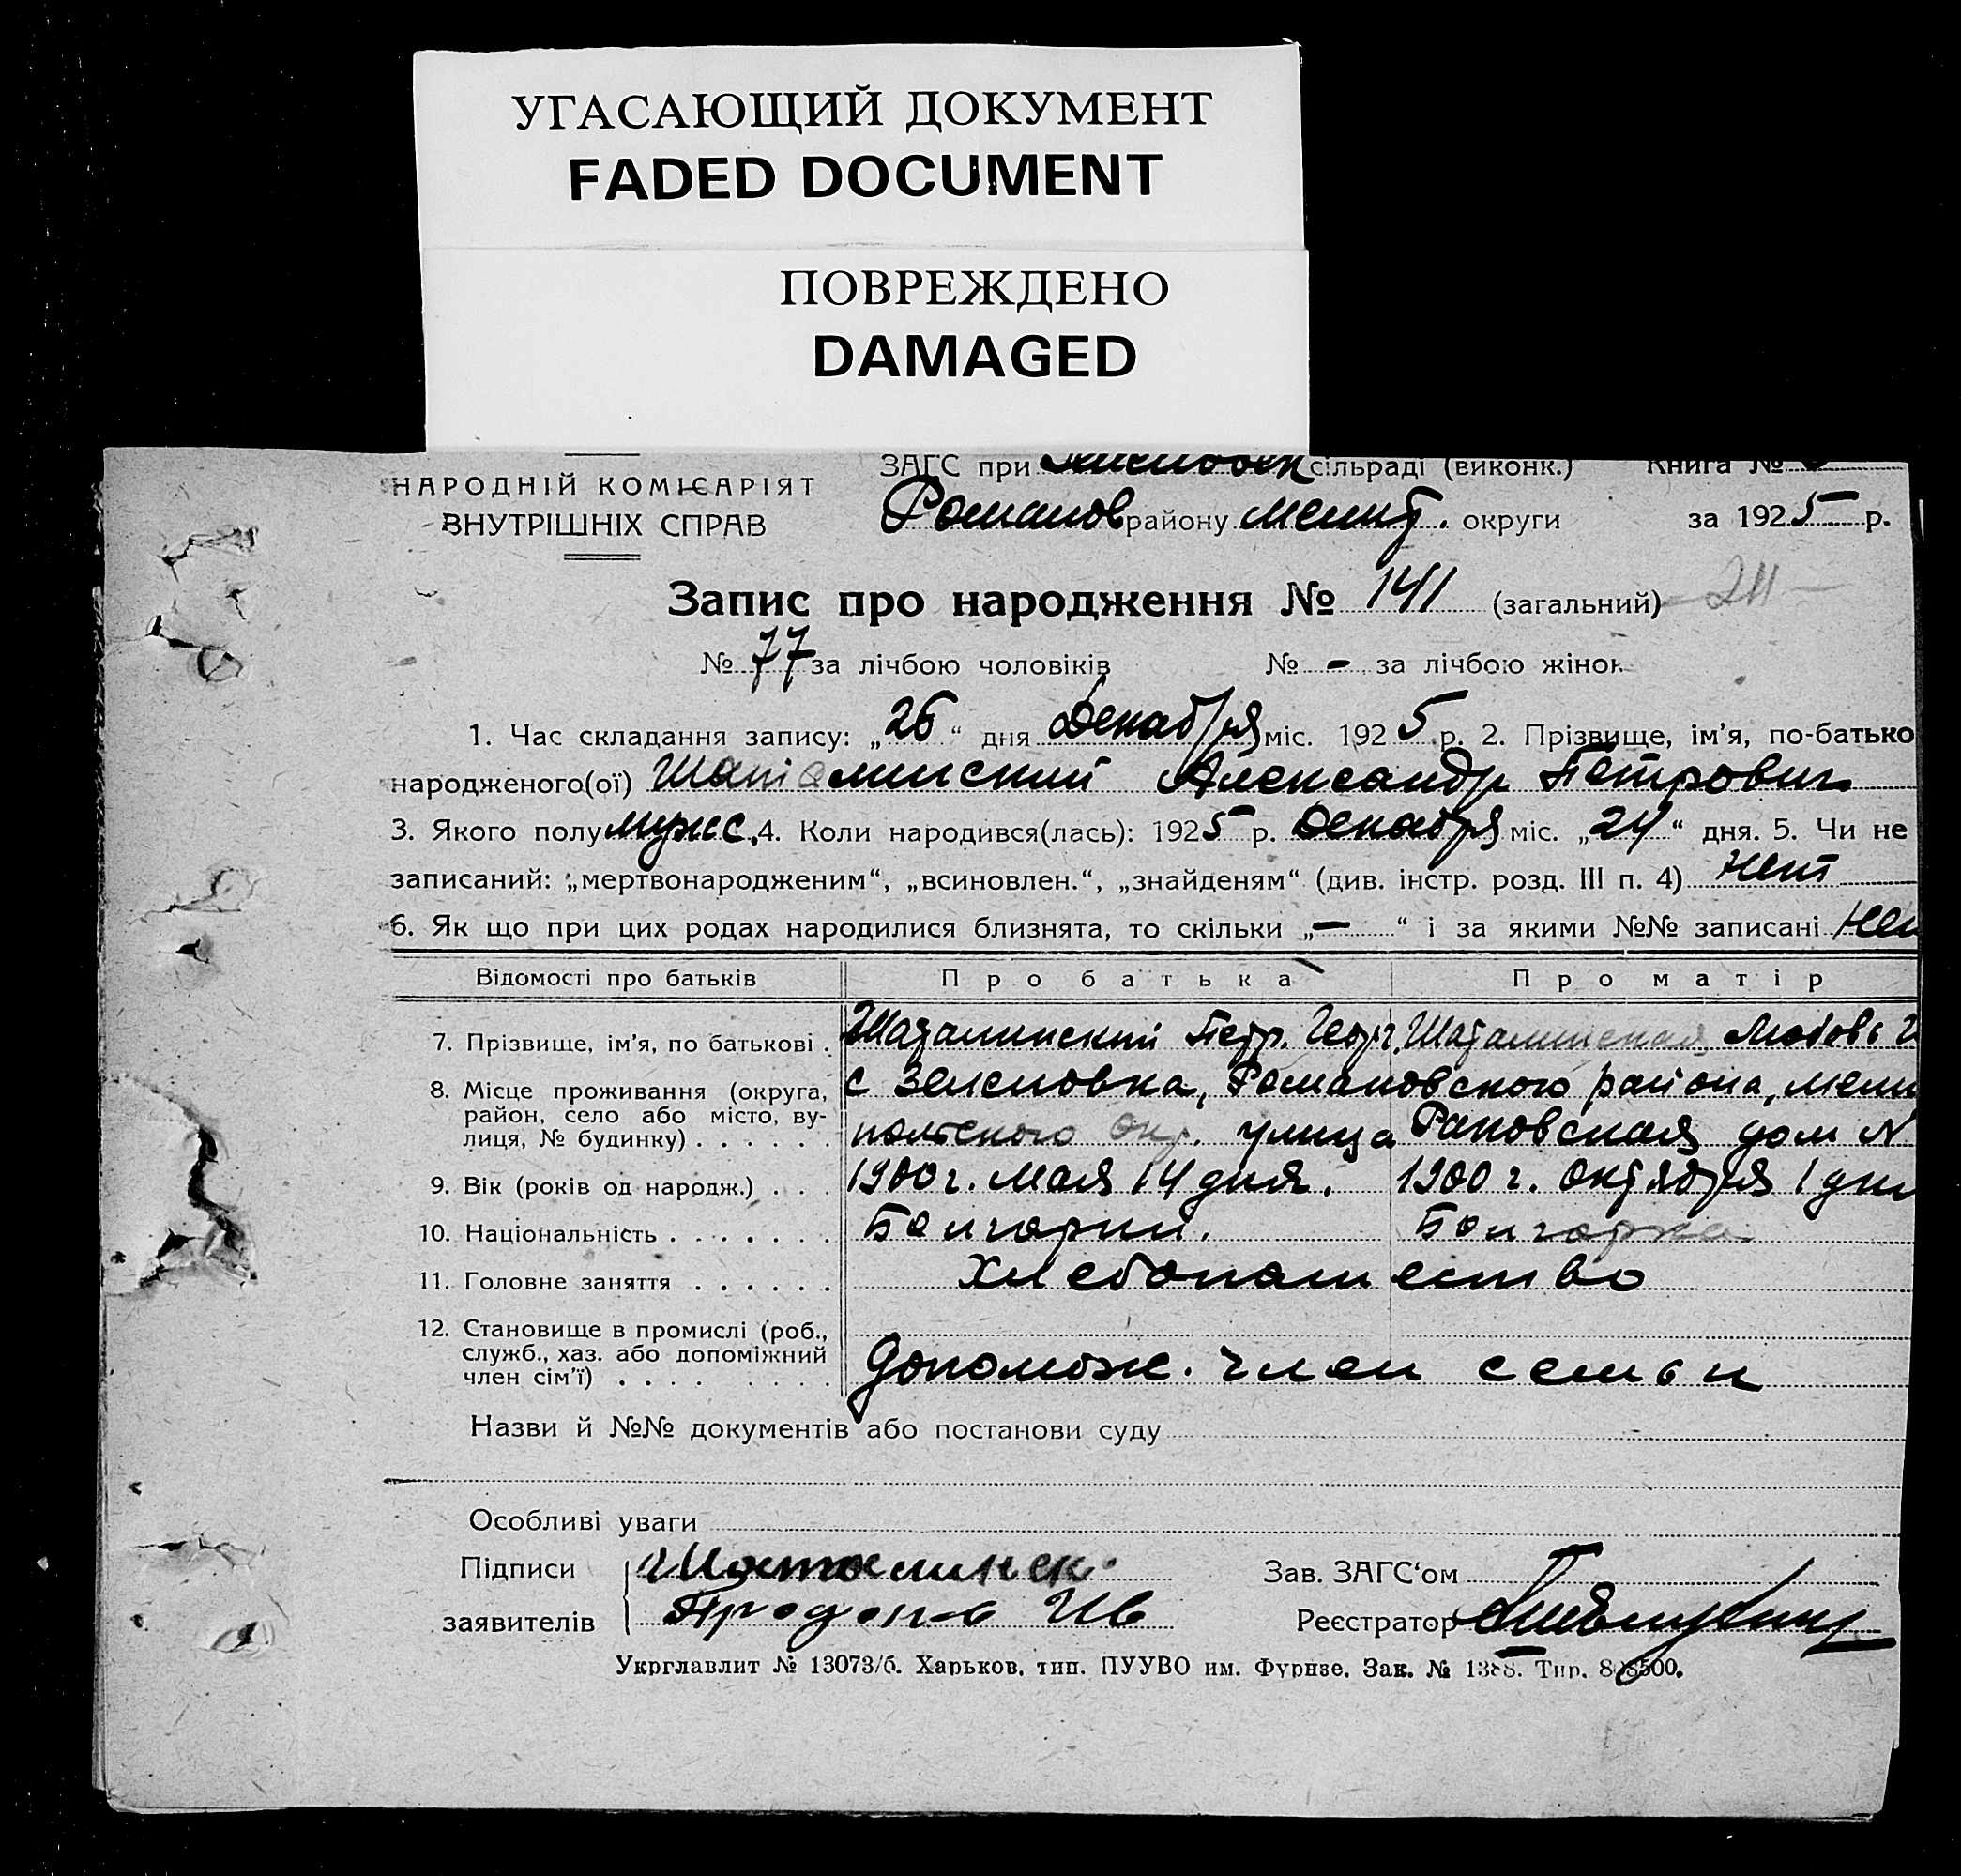 УГАСАЮЩИЙ ДОКУМЕНТ
FADED DOCUMENT
ПОВРЕЖДЕНО
DAMAGED
НАРОДНІЙ КОМІСАРІЯТ
ВНУТРІШНІХ СПРАВ
ЗАГС при сільраді (виконк.) Книга №
Романов району Мелит. округи за 1925 р.
Запис про народження № 141 (загальний)
№ 77 за лічбою чоловіків № - за лічбою жінок
1. Час складання запису: „26“ дня Декабря міс. 1925 р. 2. Прізвище, ім’я, по-батько
народженого(ої) Шаталинский Александр Петрович
3. Якого полу мужс. 4. Коли народився(лась): 1925 р. Декабря міс. „24“ дня. 5. Чи не
записаний: „мертвонародженим“, „всиновлен.“, „знайденям“ (див. інстр. розд. III п. 4) нет
6. Як що при цих родах народилися близнята, то скільки „—“ і за якими №№ записані
Відомості про батьків Про батька Про матір
7. Прізвище, ім’я, по батькові . Шаталинский Петр. Георг. Шаталинская Любовь
8. Місце проживання (округа, район, село або місто, вулиця, № будинку) . . . . . . с Зеленовка, Романовского района, Мели
польского окр. улица Раковская дом N
9. Вік (років од народж.) . . . 1900 г. Мая 14 дня. 1900 г. Октября 1 дня
10. Національність . . . . . . . Болгарин. Болгарка
11. Головне заняття . . . . . . Хлебопашество
12. Становище в промислі (роб.,
служб., хаз. або допоміжний
член сім’ї) . . . . . . . . Допомож. член семьи
Назви й №№ документів або постанови суду
Особливі уваги
Підписи Шаталинск Зав. ЗАГС‘ом
заявителів Ив Реєстратор
Укрглавлит № 13073/б. Харьков, тип. ПУУВО им. Фрунзе. Зак. №